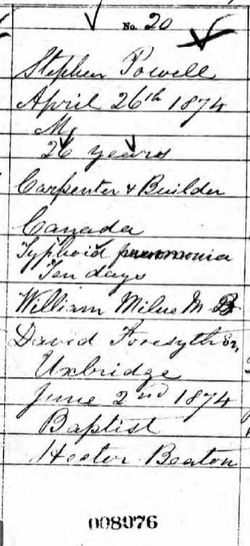 No. 20
Stephen Powell
April 26th 1874
M
26 years
Carpenter & Builder
Canada
Typhoid pneumonia
Ten days
William Milne M B
David Forsyth
Uxbridge
June 2nd 1874
Baptist
Hector Beaton
008976